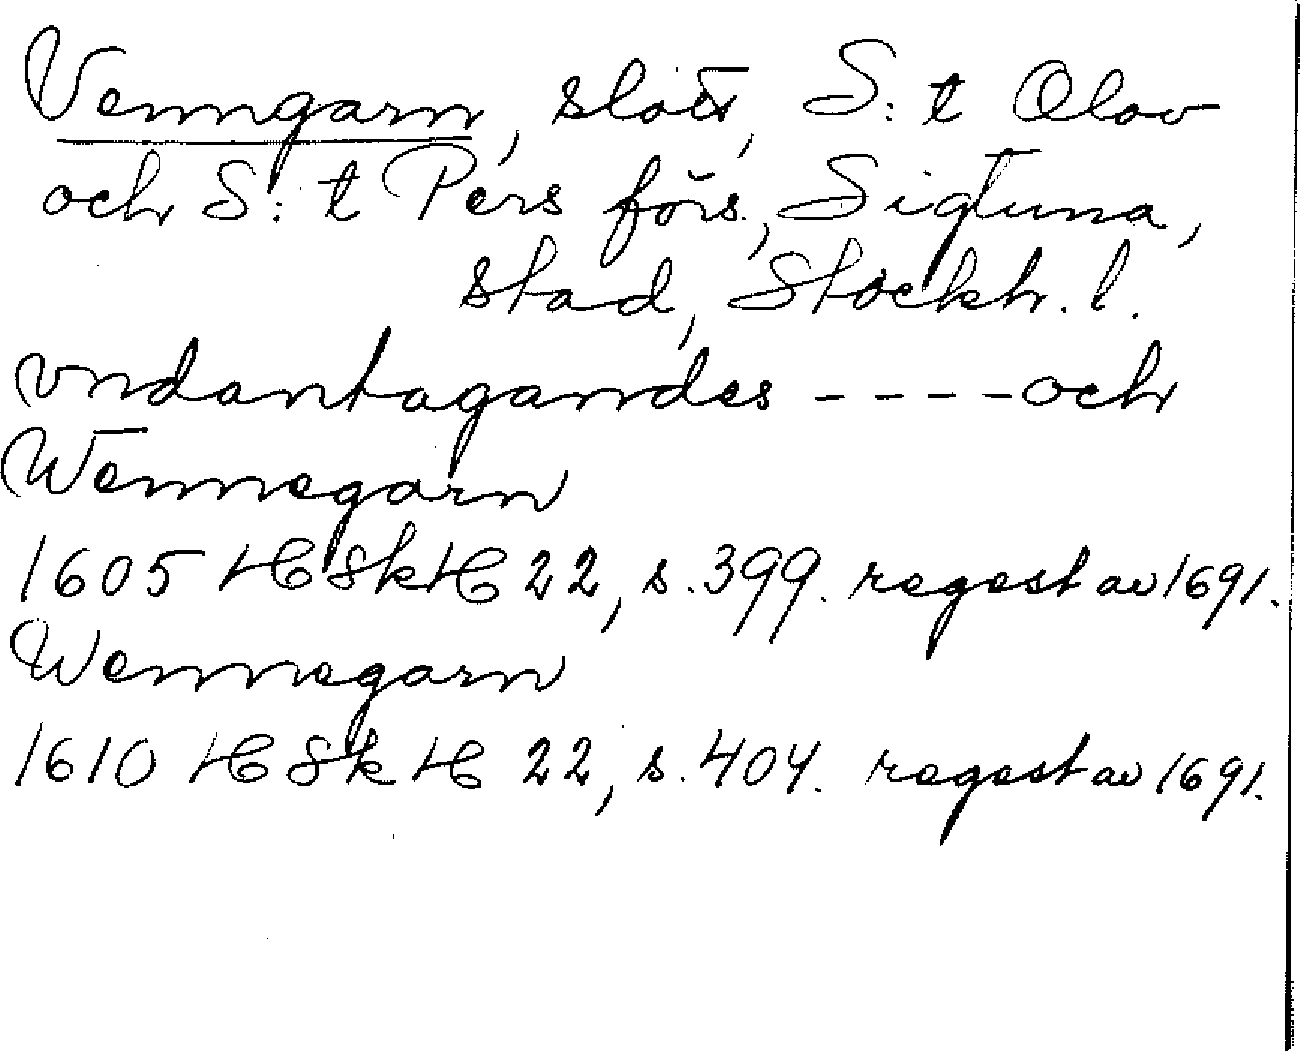 Venngarn, slott, S:t Olov
och S:t Pers förs., Sigtuna,
stad, Stockh. l.
vndantagandes ---- och
Wennegarn
1605 HSkH 22, s. 399. regest av 1691.
Wennegarn
1610 HSkH 22, s. 404. regest av 1691.